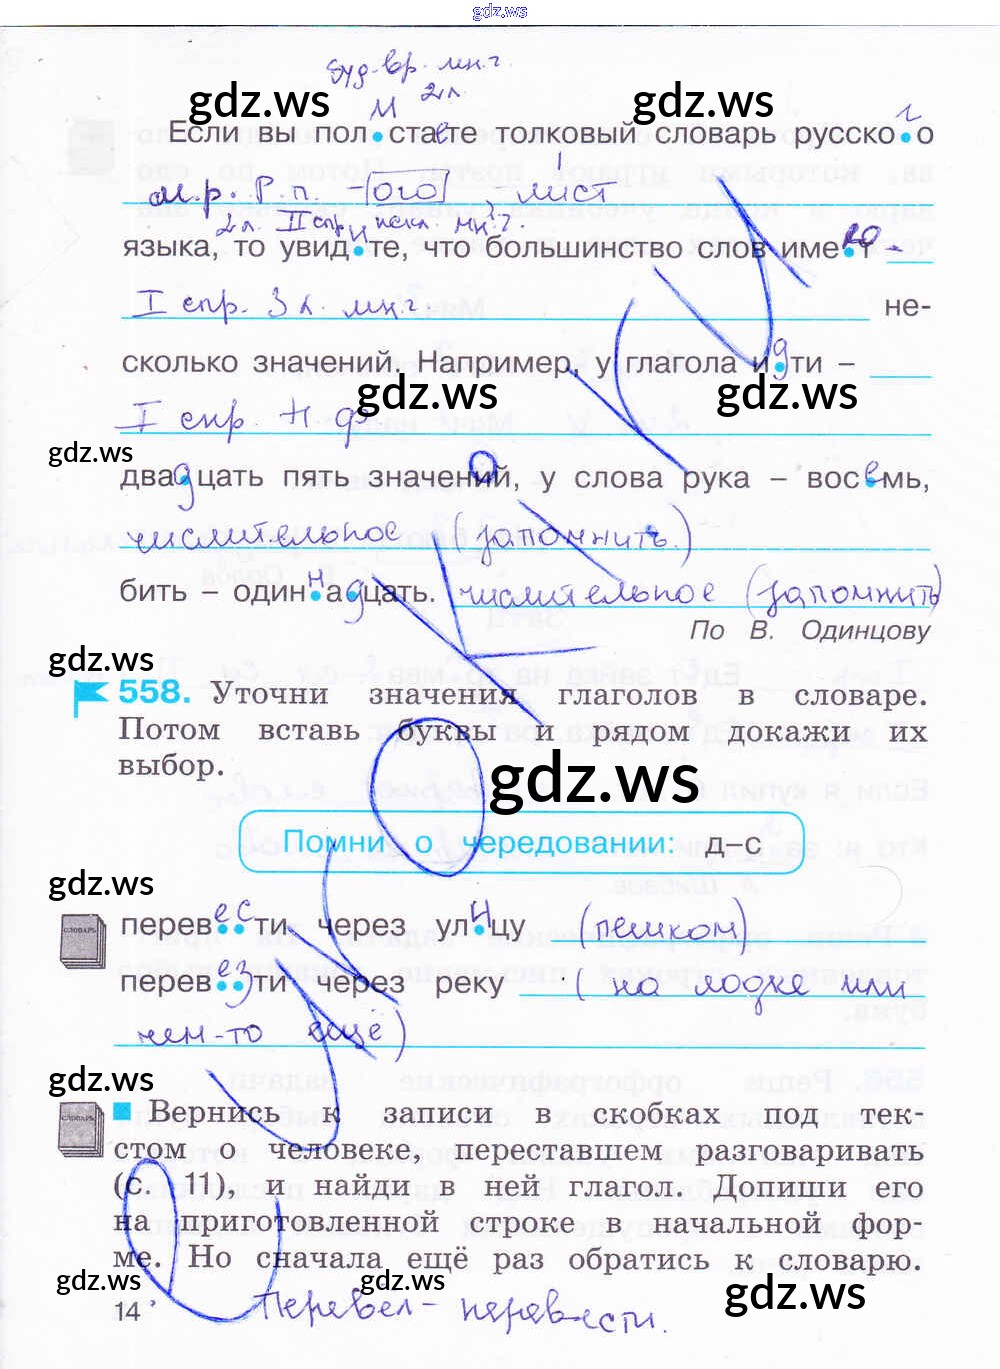 gdz.ws
буд. вр. мн.ч.
2 л.
gdz.ws gdz.ws
и г
Если вы пол•стаете толковый словарь русско•о
м.р. Р.п. -ого, лист
2 л. II спр. искл. мн.ч.
языка, то увид•те, что большинство слов име•т –
I спр. 3 л. мн.ч не-
сколько значений. Например, у глагола идти –
gdz.ws gdz.ws
I спр. Н.ф.
gdz.ws
двадцать пять значений, у слова рука – восемь,
числительное (запомнить.)
бить – одиннадцать. числительное (запомнить)
По В. Одинцову
gdz.ws
558. Уточни значения глаголов в словаре.
Потом вставь буквы и рядом докажи их
выбор.
gdz.ws
Помни о чередовании: д–с
gdz.ws
СЛОВАРЬ
перевести через улицу (пешком)
перевезти через реку (на лодке или
чем-то ещё)
gdz.ws
СЛОВАРЬ
Вернись к записи в скобках под тек-
стом о человеке, переставшем разговаривать
(с. 11), и найди в ней глагол. Допиши его
на приготовленной строке в начальной фор-
ме. Но сначала ещё раз обратись к словарю.
gdz.ws gdz.ws gdz.ws
14 Перевёл - перевести.